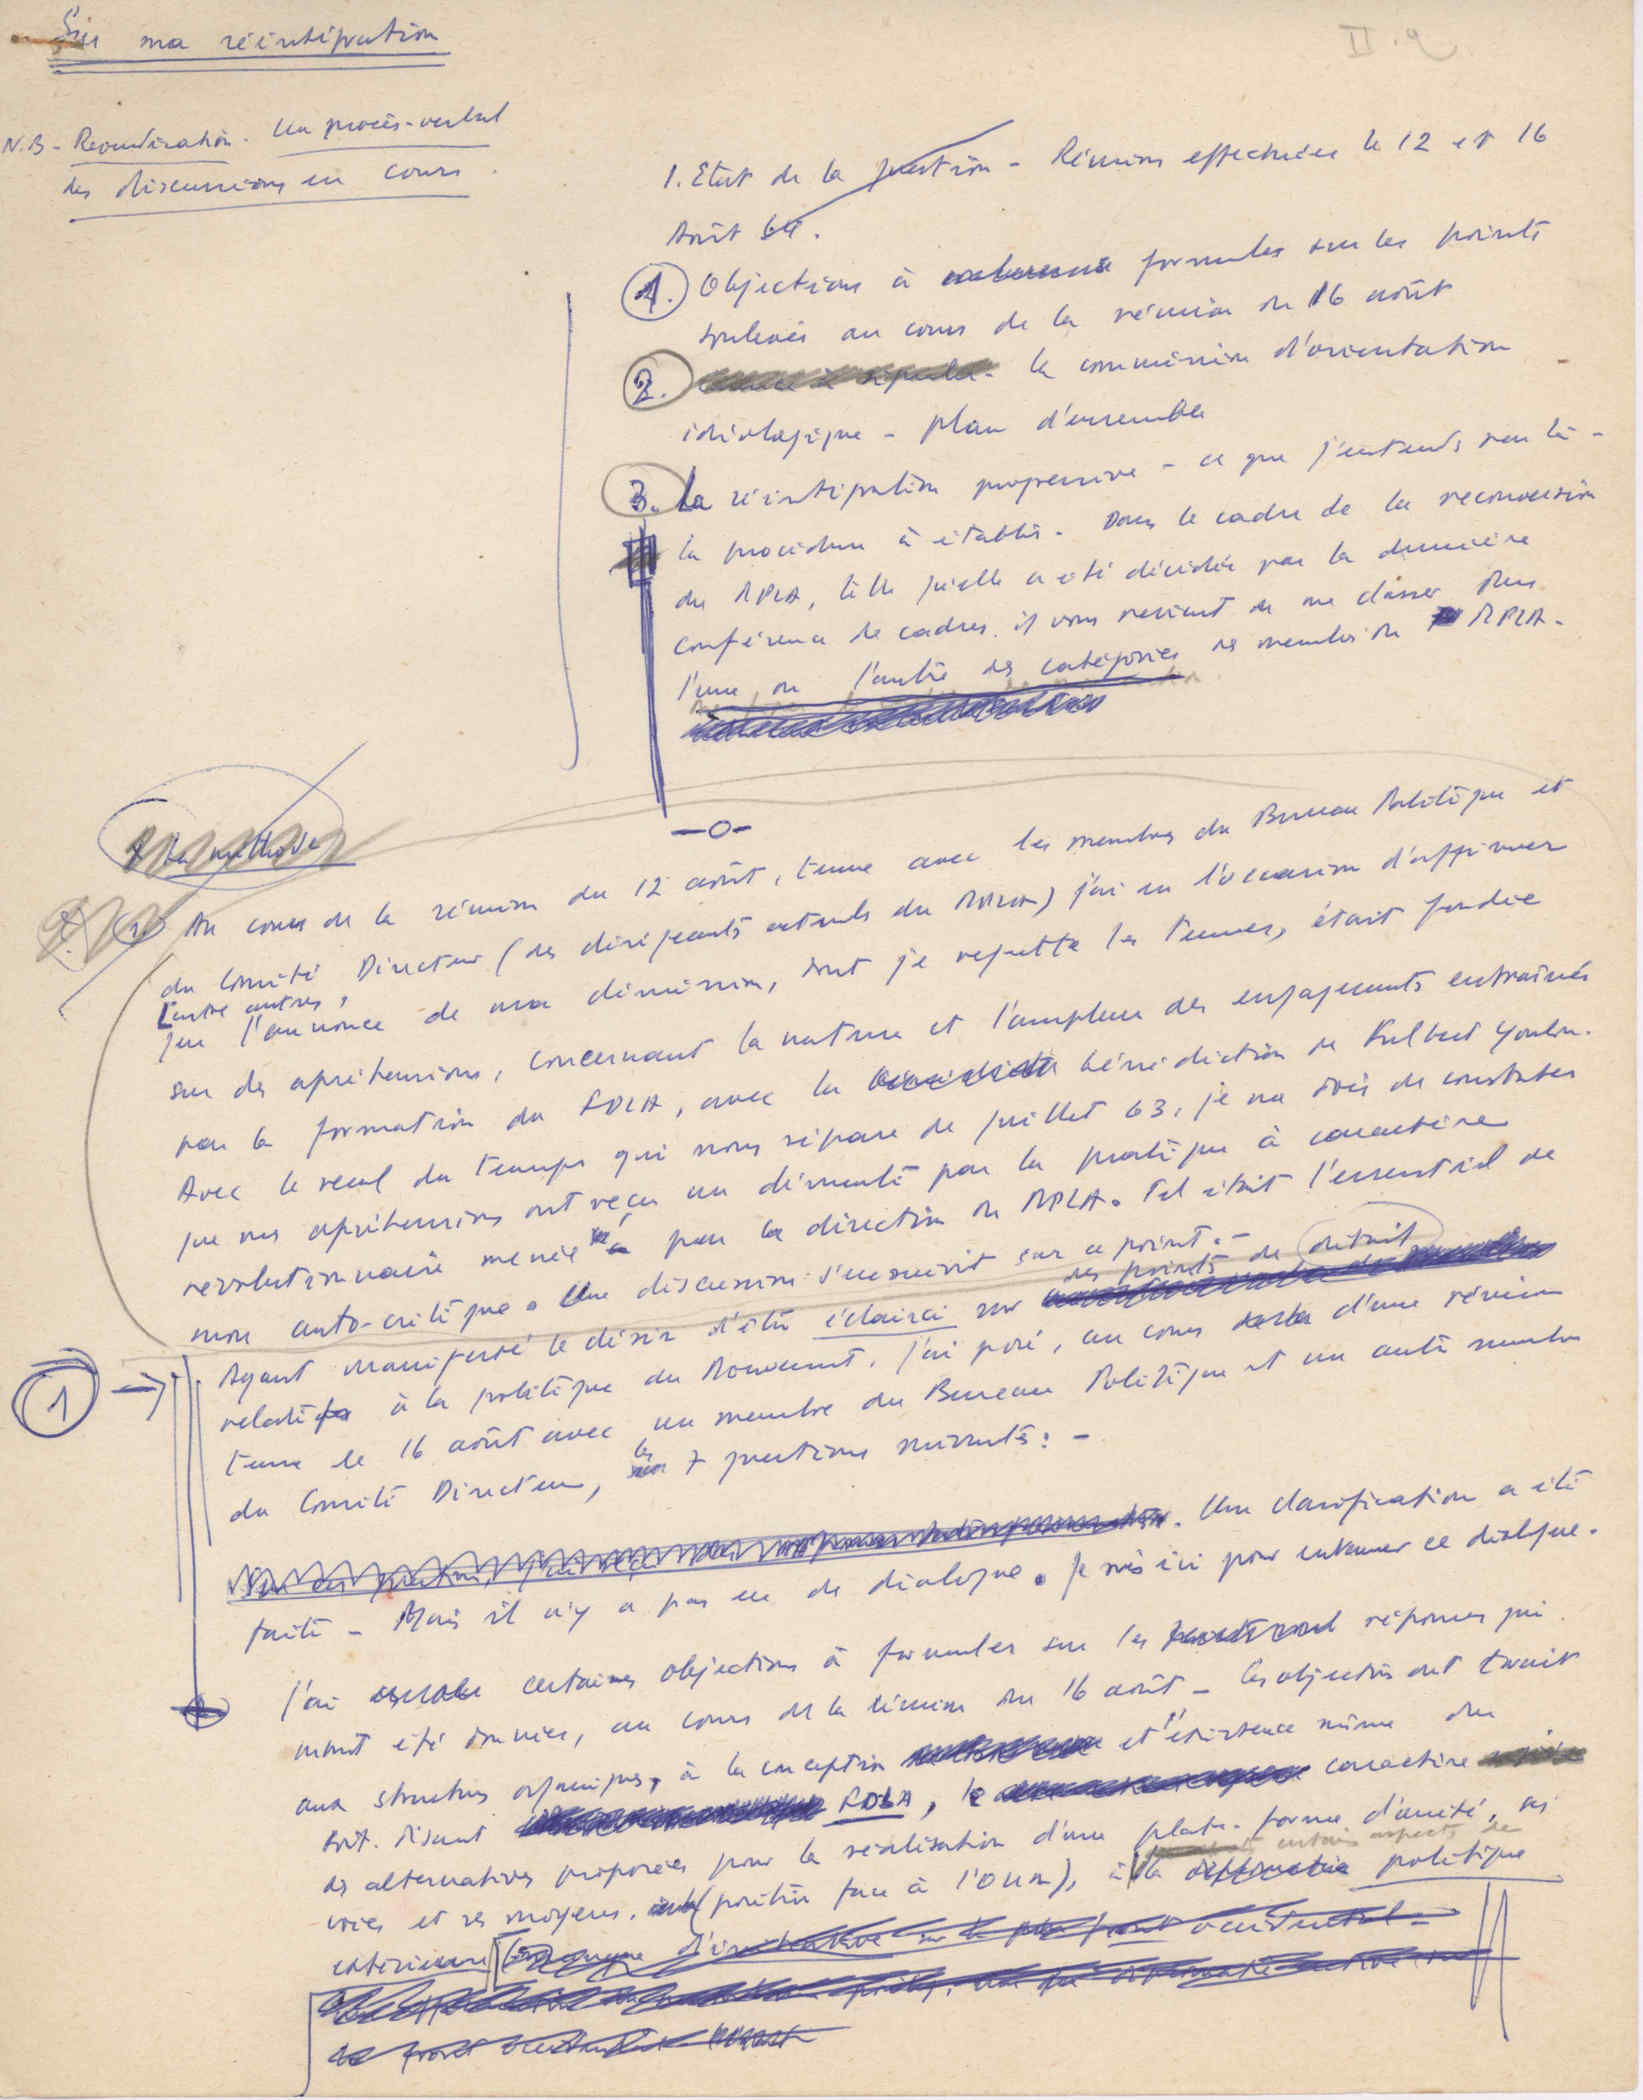 Sur ma réintégration
II.9
N.B - Revendication. Un procès-verbal
des discussions en cours.
1. Etat de la question - Réunions effectuées le 12 et 16
Août 64.
1. Objections à formuler sur les points
soulevés au cours de la réunion du 16 août
2. la commission d'orientation
idéologique - plan d'ensemble
3. La réintégration progressive - ce que j'entends par là -
la procédure à établir. Dans le cadre de la reconversion
du MPLA, telle qu'elle a été décidée par la dernière
conférence de cadres. il vous revient de me classer dans
l'une ou l'autre des catégories de membres du MPLA.
-o-
La méthode
1. Au cours de la réunion du 12 août, tenue avec les membres du Bureau Politique et
du Comité Directeur (des dirigeants actuels du MPLA) j'ai eu l'occasion d'affirmer
entre autres,
que l'annonce de ma démission, dont je regrette les termes, était fondée
sur des apréhensions, concernant la nature et l'ampleur des engagements entraînés
par la formation du FDLA, avec la bénédiction de Fulbert Youlou.
Avec le recul du temps qui nous sépare de juillet 63, je me dois de constater
que mes apréhensions ont reçu un démenti par la pratique à caractère
révolutionnaire menée par la direction du MPLA. Tel était l'essentiel de
mon auto-critique. Une discussion s'ensuivit sur ce point.-
des points de détail
Ayant manifesté le désir d'être éclairci sur
1 → relatifs à la politique du Mouvement, j'ai posé, au cours d'une réunion
tenue le 16 août avec un membre du Bureau Politique et un autre membre
du Comité Directeur, les 7 questions suivantes: -
Sur ces questions, j'ai reçu des réponses. Une clarification a été
faite - Mais il n'y a pas eu de dialogue. Je suis ici pour entamer ce dialogue.
J'ai certaines objections à formuler sur les réponses qui
m'ont été données, au cours de la réunion du 16 août - Ces objections ont trait
aux structures organiques, à la conception et l'existence même du
soit-disant FDLA, le caractère
des alternatives proposées pour la réalisation d'une plate-forme d'unité, ses
certains aspects de
voies et ses moyens, (position face à l'OUA), à la politique
extérieure